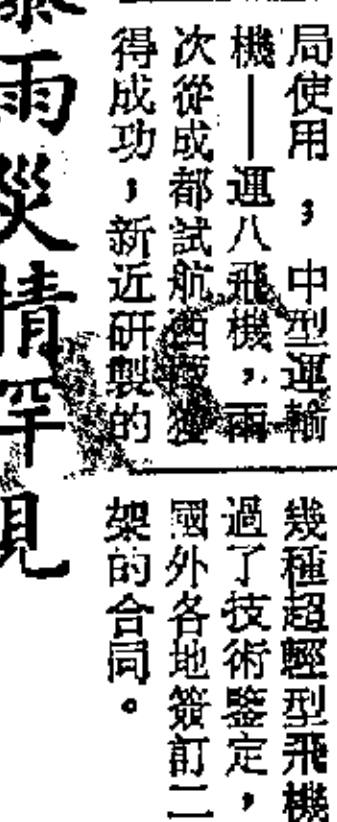 局使用,中型運輸
機——運八飛機,兩
次從成都試航西藏獲
得成功,新近研製的
幾種超輕型飛機
過了技術鑒定,
國外各地簽訂二
架的合同。
暴雨災情罕見